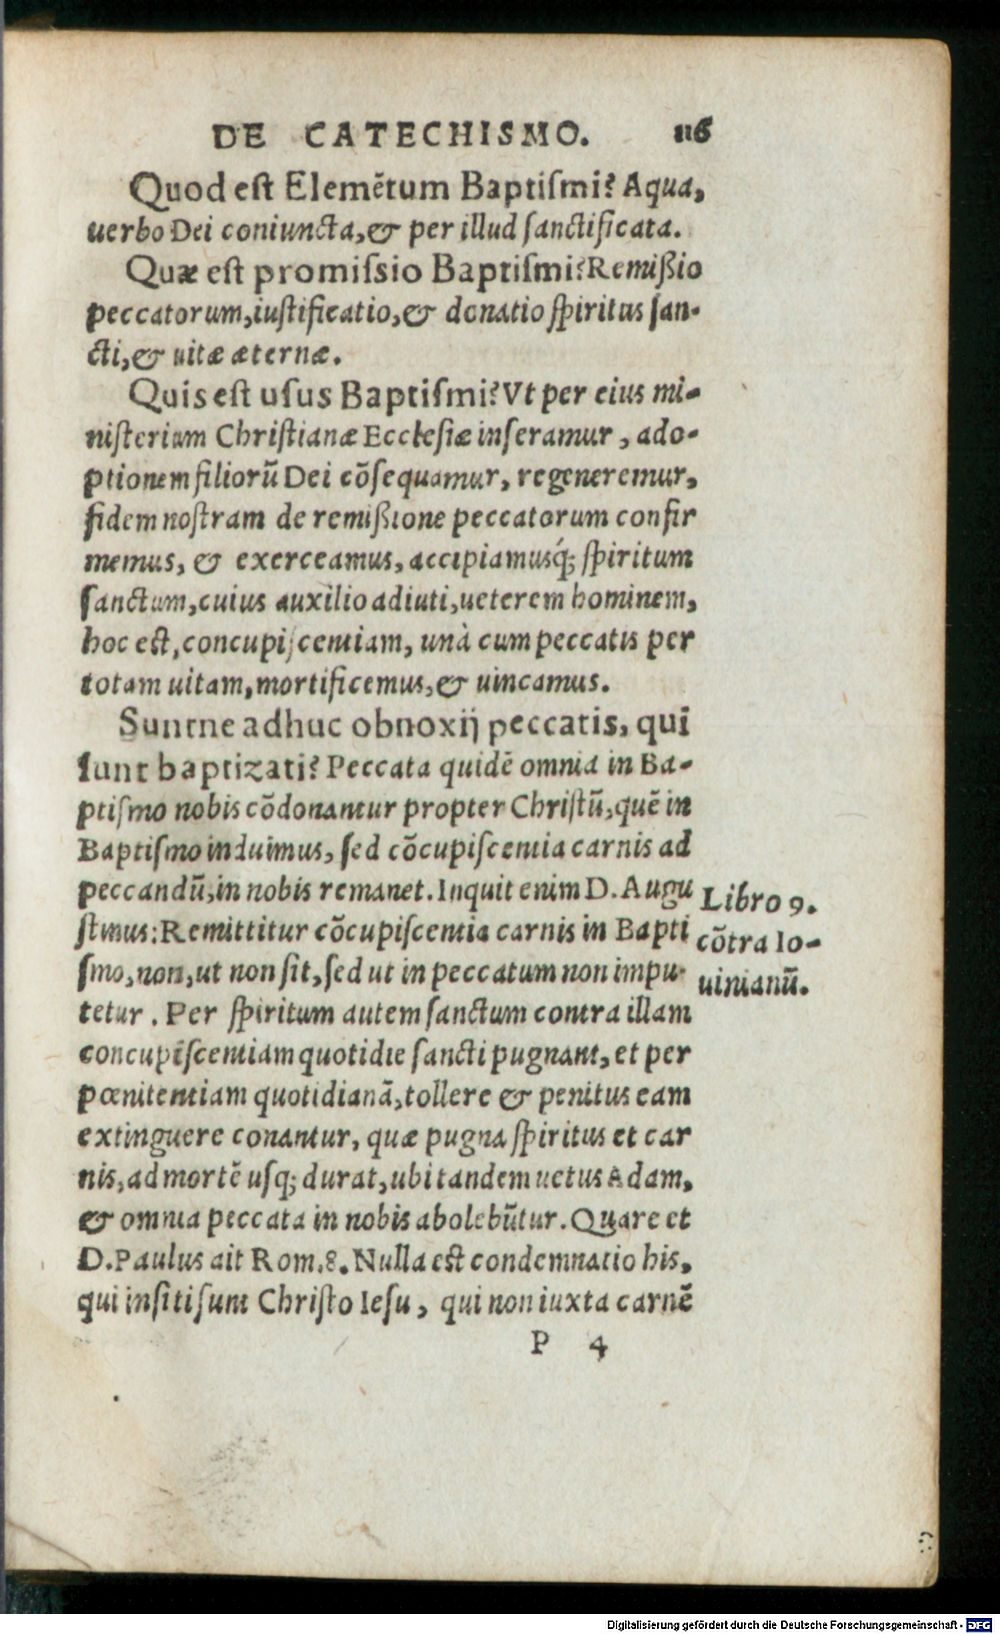 DE CATECHISMO. 116
Quod est Elemẽtum Baptiſmi? Aqua,
uerbo Dei coniuncta, & per illud ſanctificata.
Quæ est promiſsio Baptiſmi? Remißio
peccatorum, iuſtificatio, & donatio ſpiritus ſan-
cti, & uitæ æternæ.
Quis est uſus Baptiſmi? Vt per eius mi-
niſterium Chriſtianæ Eccleſiæ inſeramur, ado-
ptionem filiorũ Dei cõſequamur, regeneremur,
fidem noſtram de remißione peccatorum confir
memus, & exerceamus, accipiamusq́; ſpiritum
ſanctum, cuius auxilio adiuti, ueterem hominem,
hoc est, concupiſcentiam, unà cum peccatis per
totam uitam, mortificemus, & uincamus.
Suntne adhuc obnoxij peccatis, qui
ſunt baptizati? Peccata quidẽ omnia in Ba-
ptiſmo nobis cõdonantur propter Chriſtũ, quẽ in
Baptiſmo induimus, ſed cõcupiſcentia carnis ad
peccandũ, in nobis remanet. Inquit enim D. Augu
ſtinus: Remittitur cõcupiſcentia carnis in Bapti
ſmo, non, ut non ſit, ſed ut in peccatum non impu-
tetur. Per ſpiritum autem ſanctum contra illam
concupiſcentiam quotidie ſancti pugnant, et per
pœnitentiam quotidianã, tollere & penitus eam
extinguere conantur, quæ pugna ſpiritus et car
nis, ad mortẽ uſq; durat, ubi tandem uetus Adam,
& omnia peccata in nobis abolebũtur. Quare et
D. Paulus ait Rom. 8. Nulla est condemnatio his,
qui inſiti ſunt Chriſto Ieſu, qui non iuxta carnẽ
P 4
Libro 9.
cõtra Io-
uinianũ.
Digitalisierung gefördert durch die Deutsche Forschungsgemeinschaft - DFG